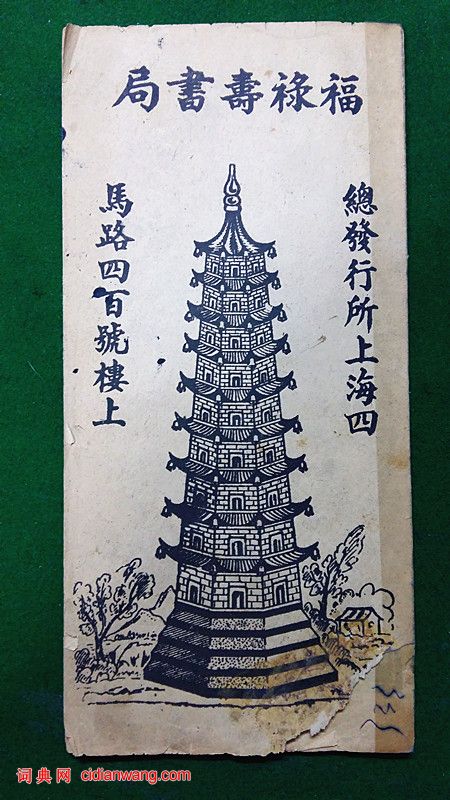 福祿壽書局
總發行所上海四
馬路四百號樓上
词典网 cidianwang.com